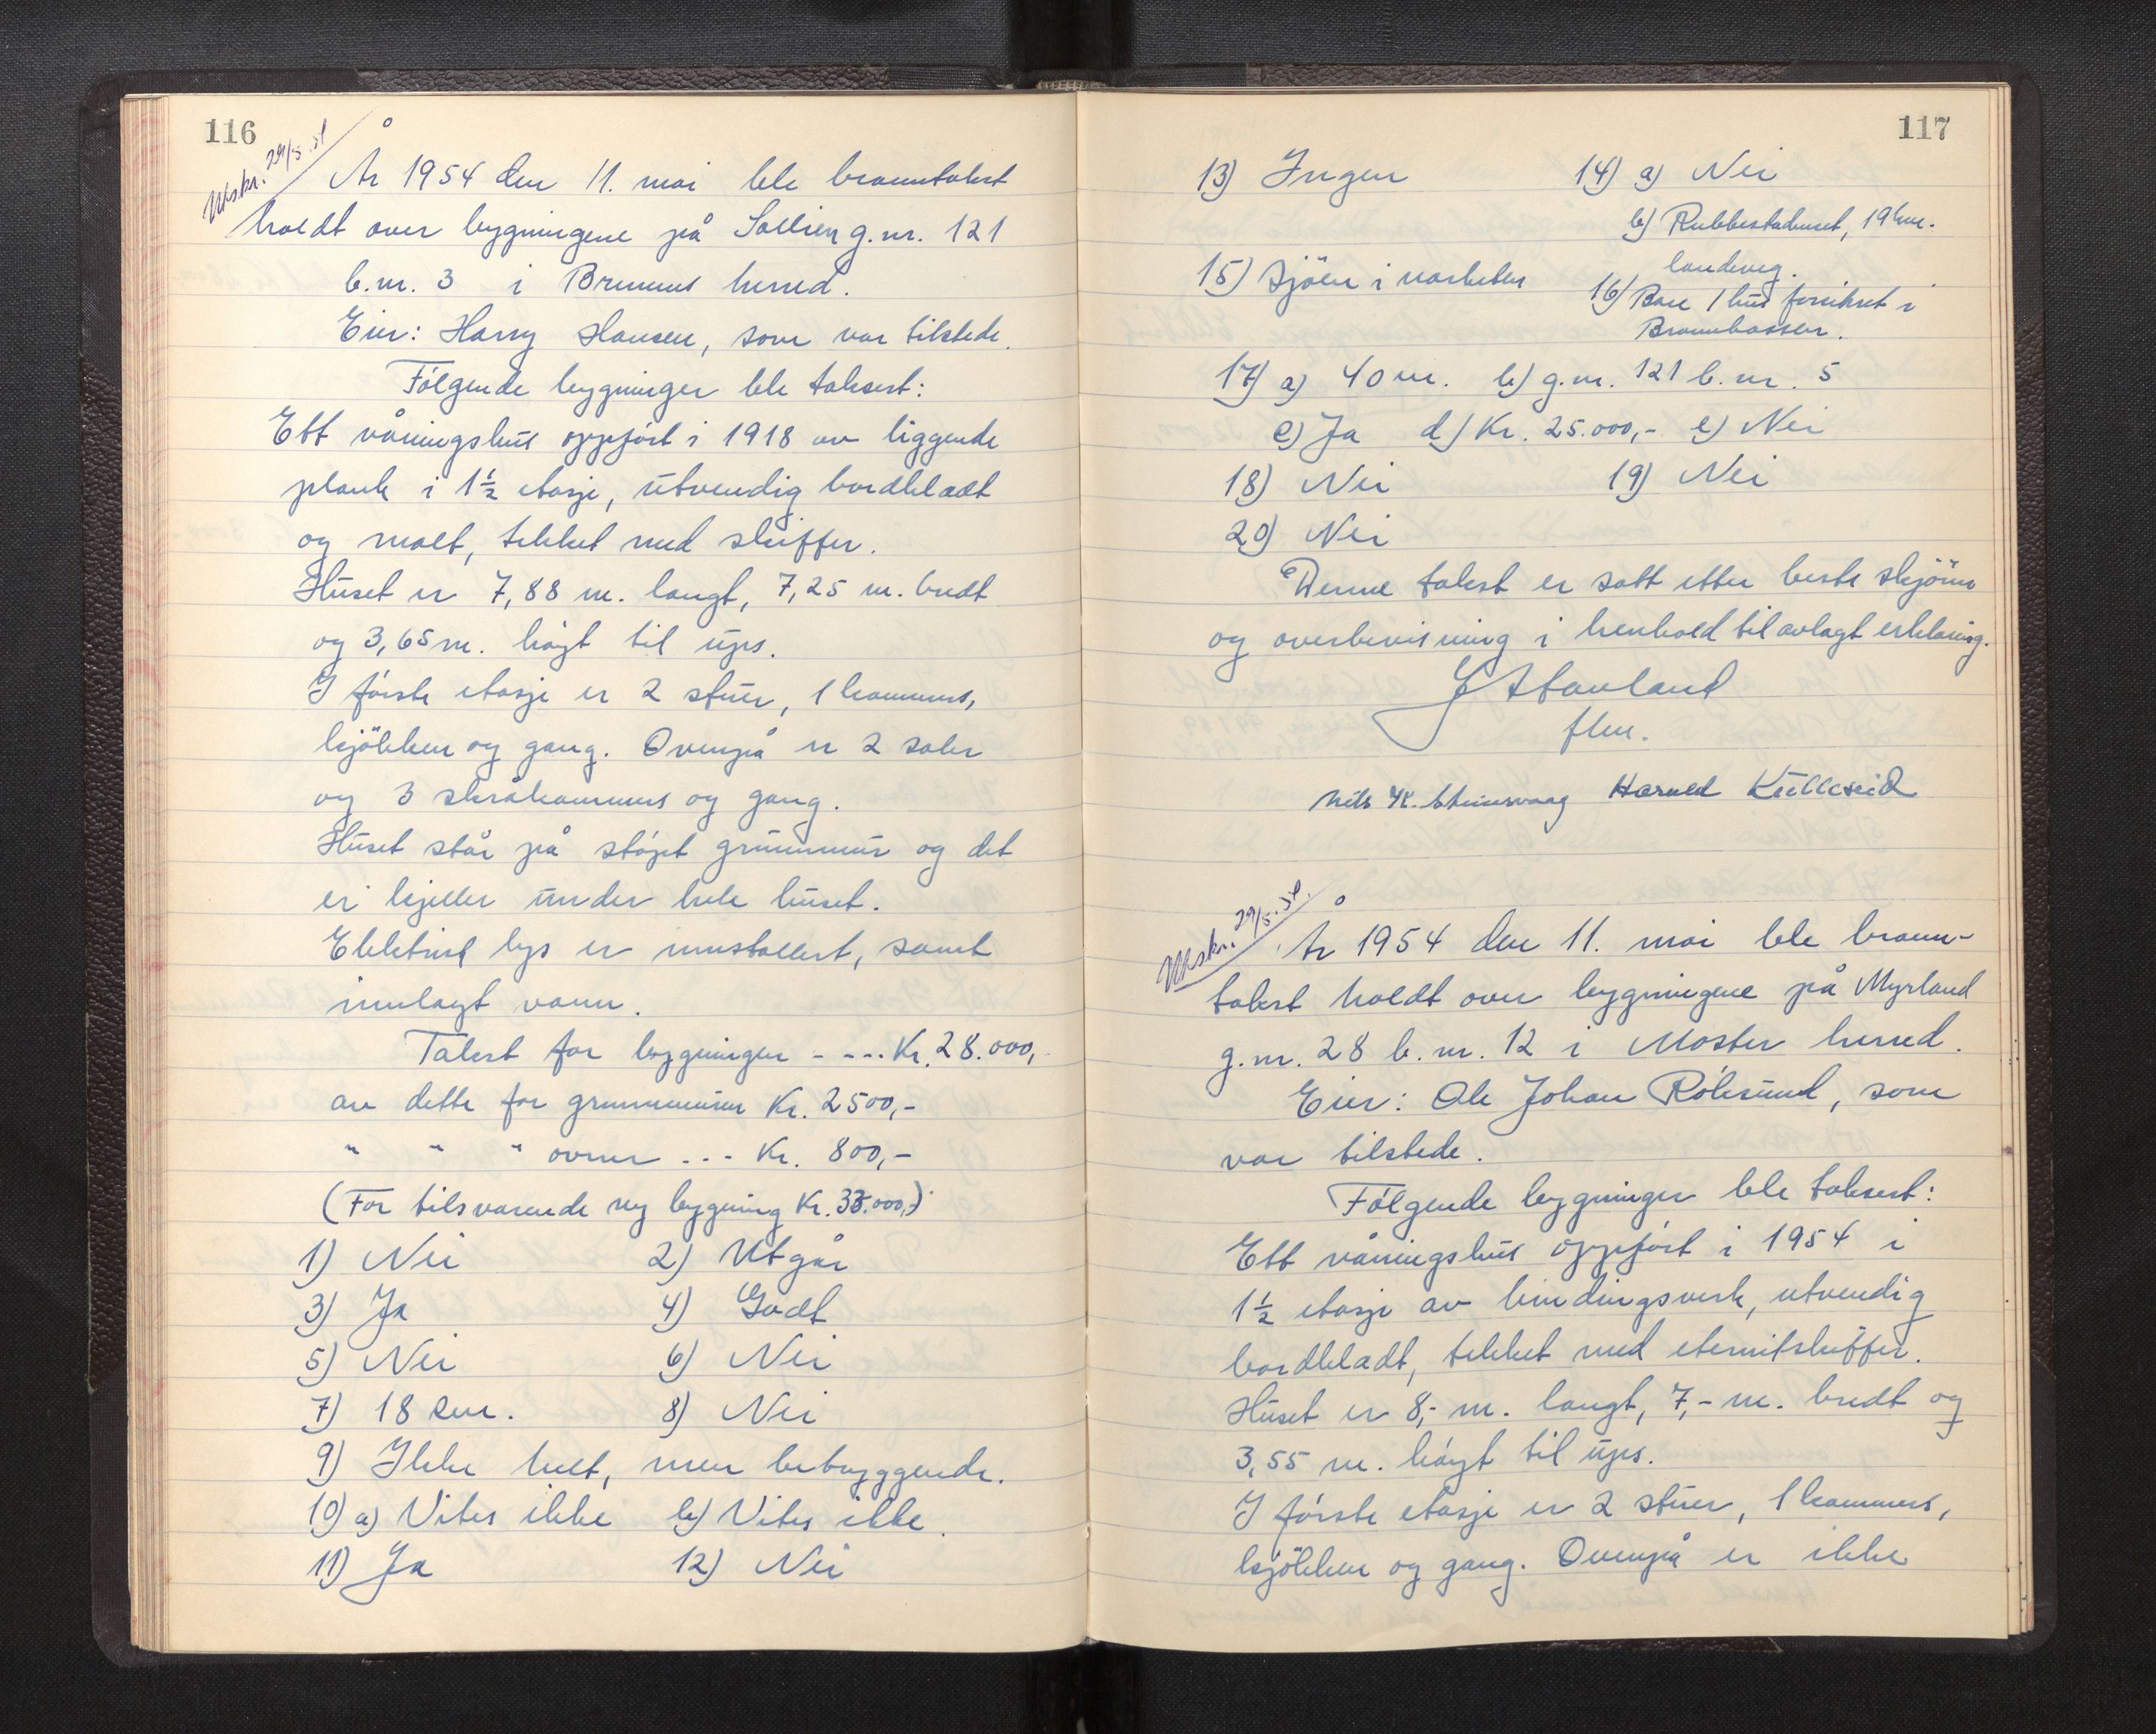 116
Utskr. 29/5. 54
År 1954 den 11. mai ble branntakst
holdt over bygningene på Sollien g.nr. 121
b.nr. 3 i Bremnes herred.
Eier: Harry Hansen, som var tilstede.
Følgende bygninger ble taksert:
Ett våningshus oppført i 1918 av liggende
plank i 1½ etasje, utvendig bordkledt
og malt, tekket med skiffer.
Huset er 7,88 m. langt, 7,25 m. bredt
og 3,65 m. høgt til ups.
I første etasje er 2 stuer, 1 kammers,
kjøkken og gang. Ovenpå er 2 saler
og 3 skråkammers og gang.
Huset står på støpt grunnmur og det
er kjeller under hele huset.
Elektrisk lys er innstallert, samt
innlagt vann.
Takst for bygningen - --- Kr. 28.000,-
av dette for grunnmuren Kr. 2500,-
" " " ovner --- Kr. 800,-
(For tilsvarende ny bygning Kr. 33.000,-)
1) Nei 2) Utgår
3) Ja 4) Godt
5) Nei 6) Nei
7) 18 cm. 8) Nei
9) Ikke helt, men betryggende.
10) a) Vites ikke b) Vites ikke.
11) Ja 12) Nei
117
13) Ingen 14) a) Nei
b) Rubbestadneset, 19 km.
landeveg.
15) Sjöen i nærheten 16) Bare 1 hus forsikret i
Brannkassen.
17) a) 40 m. b) g.nr. 121 b.nr. 5
c) Ja d) Kr. 25.000,- e) Nei
18) Nei 19) Nei
20) Nei
Denne takst er satt etter beste skjönn
og overbevisning i henhold til avlagt erklæring.
J Stavland
flm.
Nils K. Steinsvaag Harald Kulleseid
Utskr. 29/5. 54.
År 1954 den 11. mai ble brann-
takst holdt over bygningene på Myrland
g.nr. 28 b.nr. 12 i Moster herred.
Eier: Ole Johan Røksund, som
var tilstede.
Følgende bygninger ble taksert:
Ett våningshus oppført i 1954 i
1½ etasje av bindingsverk, utvendig
bordkledt, tekket med eternitskiffer.
Huset er 8,- m. langt, 7,- m. bredt og
3,55 m. høgt til ups.
I første etasje er 2 stuer, 1 kammers,
kjøkken og gang. Ovenpå er ikke